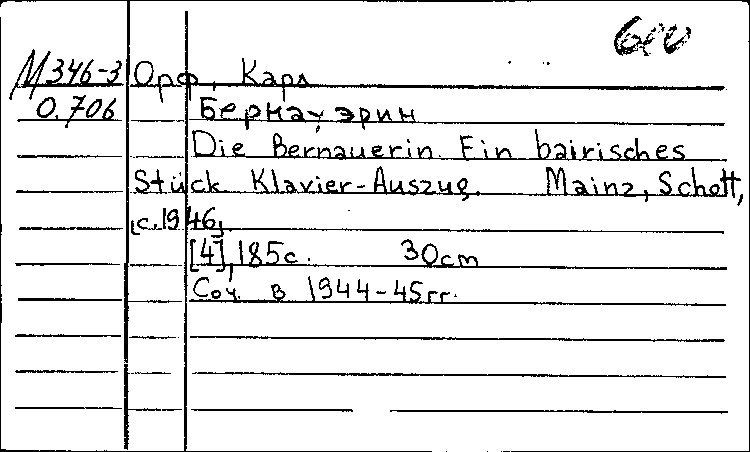 М346-3 Орф, Карл
О.706 Бернауэрин
Die Bernauerin. Ein bairisches
Stück. Klavier-Auszug. Mainz, Schott,
[c.1946].
[4], 185с. 30cm
Соч. в 1944-45гг.